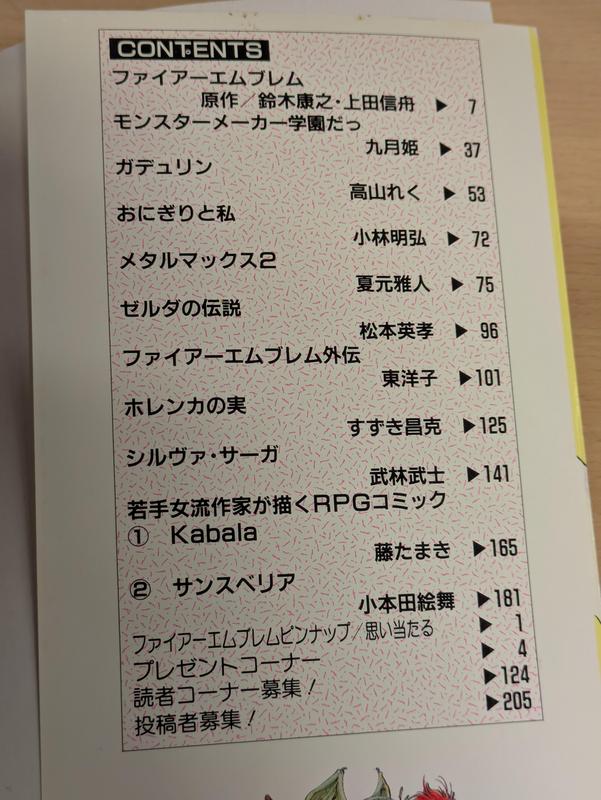 CONTENTS
ファイアーエムブレム
原作／鈴木康之・上田信舟 ▶ 7
モンスターメーカー学園だっ
九月姫 ▶ 37
ガデュリン
高山れく ▶ 53
おにぎりと私
小林明弘 ▶ 72
メタルマックス2
夏元雅人 ▶ 75
ゼルダの伝説
松本英孝 ▶ 96
ファイアーエムブレム外伝
東洋子 ▶101
ホレンカの実
すずき昌克 ▶125
シルヴァ・サーガ
武林武士 ▶141
若手女流作家が描くRPGコミック
① Kabala
藤たまき ▶165
② サンスベリア
小本田絵舞 ▶181
ファイアーエムブレムピンナップ／思い当たる ▶ 1
プレゼントコーナー ▶ 4
読者コーナー募集！ ▶124
投稿者募集！ ▶205